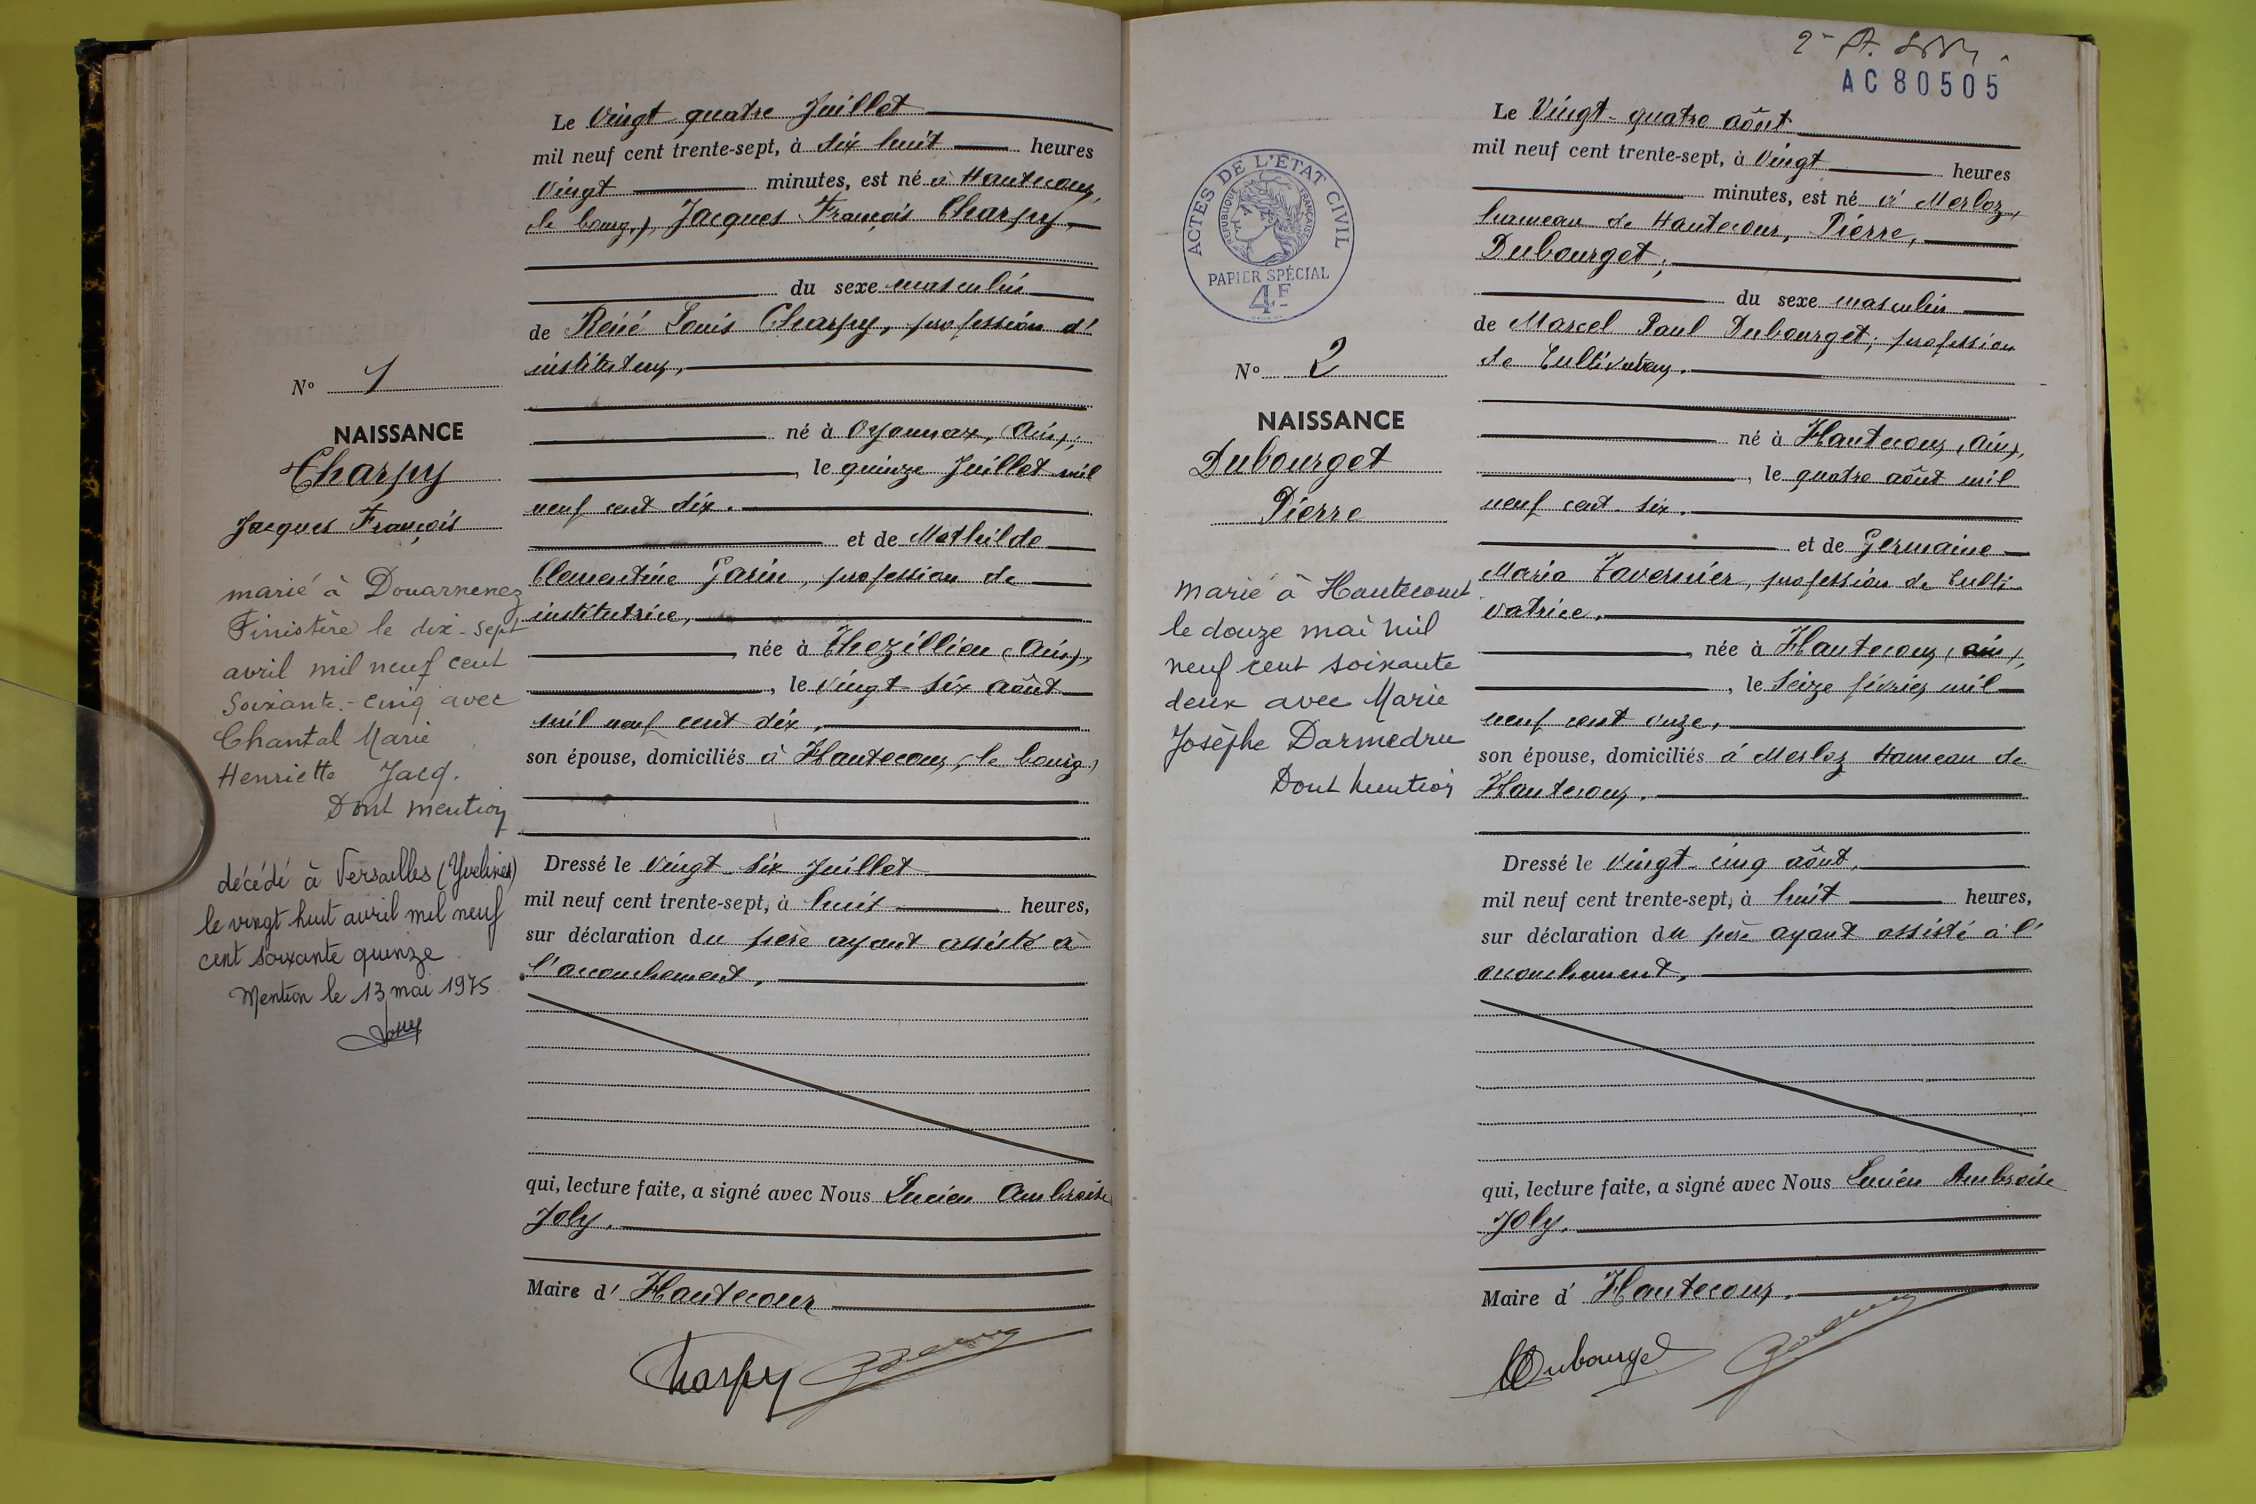 Le vingt-quatre Juillet
mil neuf cent trente-sept, à dix huit heures
vingt minutes, est né à Hautecour,
(le bourg), Jacques François Charpy,
du sexe masculin
de René Louis Charpy, profession d'
instituteur,
né à Oyonnax, (Ain),
, le quinze Juillet mil
neuf cent dix.
et de Mathilde
Clementine Garin, profession de
institutrice,
, née à Thezillieu (Ain),
, le vingt-six août
mil neuf cent dix,
son épouse, domiciliés à Hautecour, (le bourg)
Dressé le vingt-six Juillet
mil neuf cent trente-sept, à huit heures,
sur déclaration du père ayant assisté à
l'accouchement,
qui, lecture faite, a signé avec Nous Lucien Ambroise
Joly.
Maire d' Hautecour
Charpy
No 1
NAISSANCE
Charpy
Jacques François
marié à Douarnenez
Finistère le dix-sept
avril mil neuf cent
soixante-cinq avec
Chantal Marie
Henriette Jacq.
Dont mention
décédé à Versailles (Yvelines)
le vingt huit avril mil neuf
cent soixante quinze
Mention le 13 mai 1975
AC 80505
Le Vingt-quatre août
mil neuf cent trente-sept, à vingt heures
minutes, est né à Merloz,
hameau de Hautecour, Pierre,
Dubourget,
du sexe masculin
de Marcel Paul Dubourget, profession
de Cultivateur.
né à Hautecour, (Ain),
, le quatre août mil
neuf cent-six.
et de Germaine
Maria Tavernier, profession de Culti-
vatrice.
, née à Hautecour, (Ain),
, le seize février mil
neuf cent onze,
son épouse, domiciliés à Merloz Hameau de
Hautecour.
Dressé le vingt-cinq août,
mil neuf cent trente-sept, à huit heures,
sur déclaration du père ayant assisté à l'
accouchement,
qui, lecture faite, a signé avec Nous Lucien Ambroise
Joly.
Maire d' Hautecour.
Dubourget
ACTES DE L'ÉTAT CIVIL
RÉPUBLIQUE FRANÇAISE
PAPIER SPÉCIAL
4F
No 2
NAISSANCE
Dubourget
Pierre
marié à Hautecourt
le douze mai mil
neuf cent soixante
deux avec Marie
Josèphe Darmedru
Dont mention